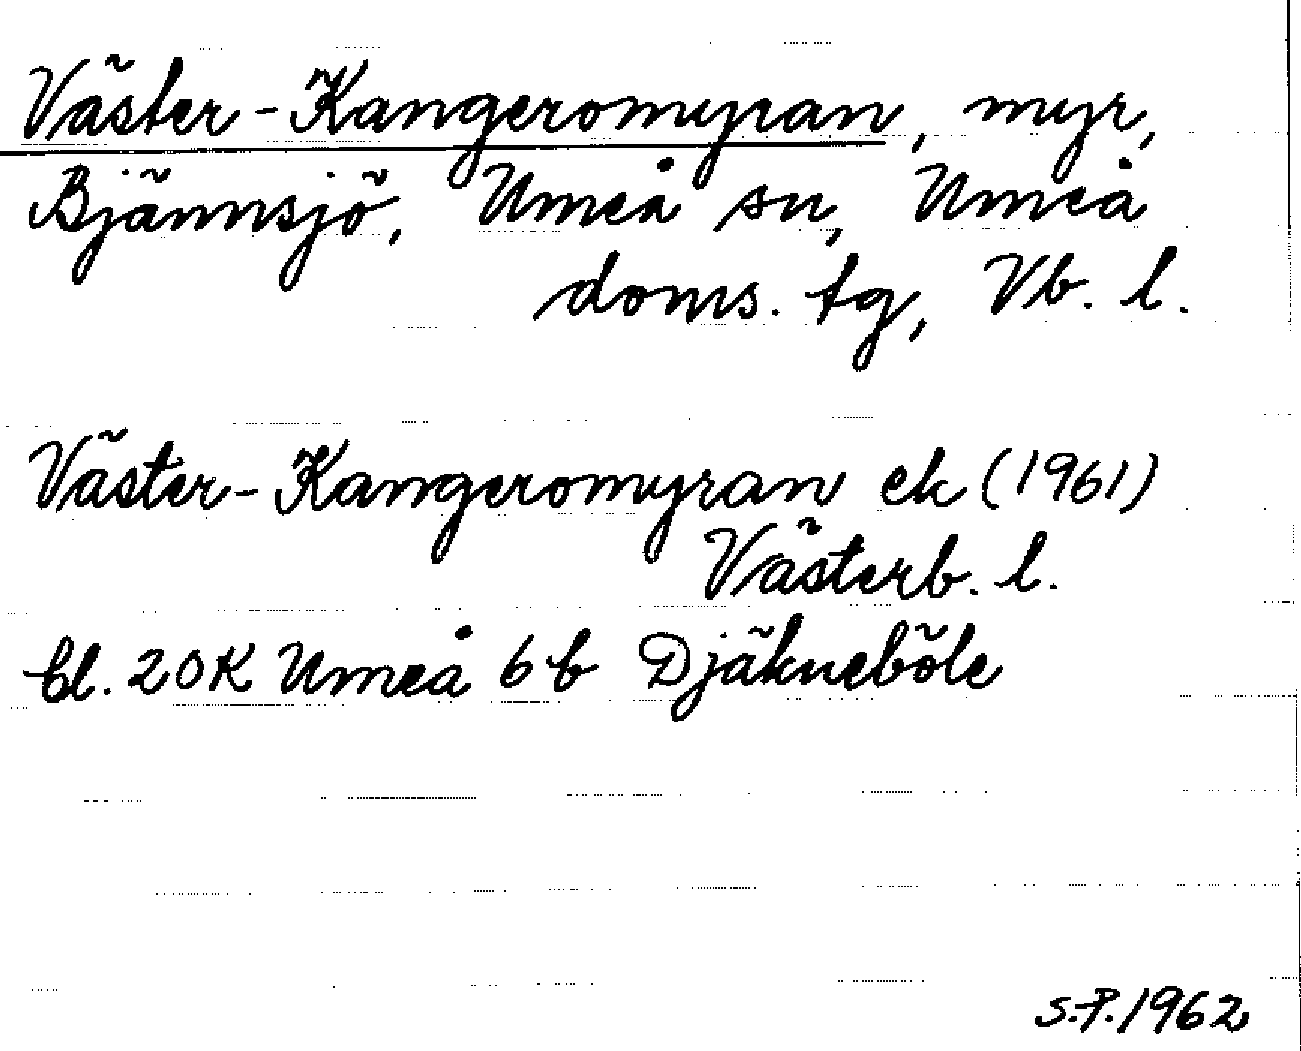 Väster-Kangeromyran, myr,
Bjännsjö, Umeå sn, Umeå
doms. tg, Vb. l.
Väster-Kangeromyran ek (1961)
Västerb. l.
bl. 20K Umeå 6b Djäkneböle
S.P. 1962